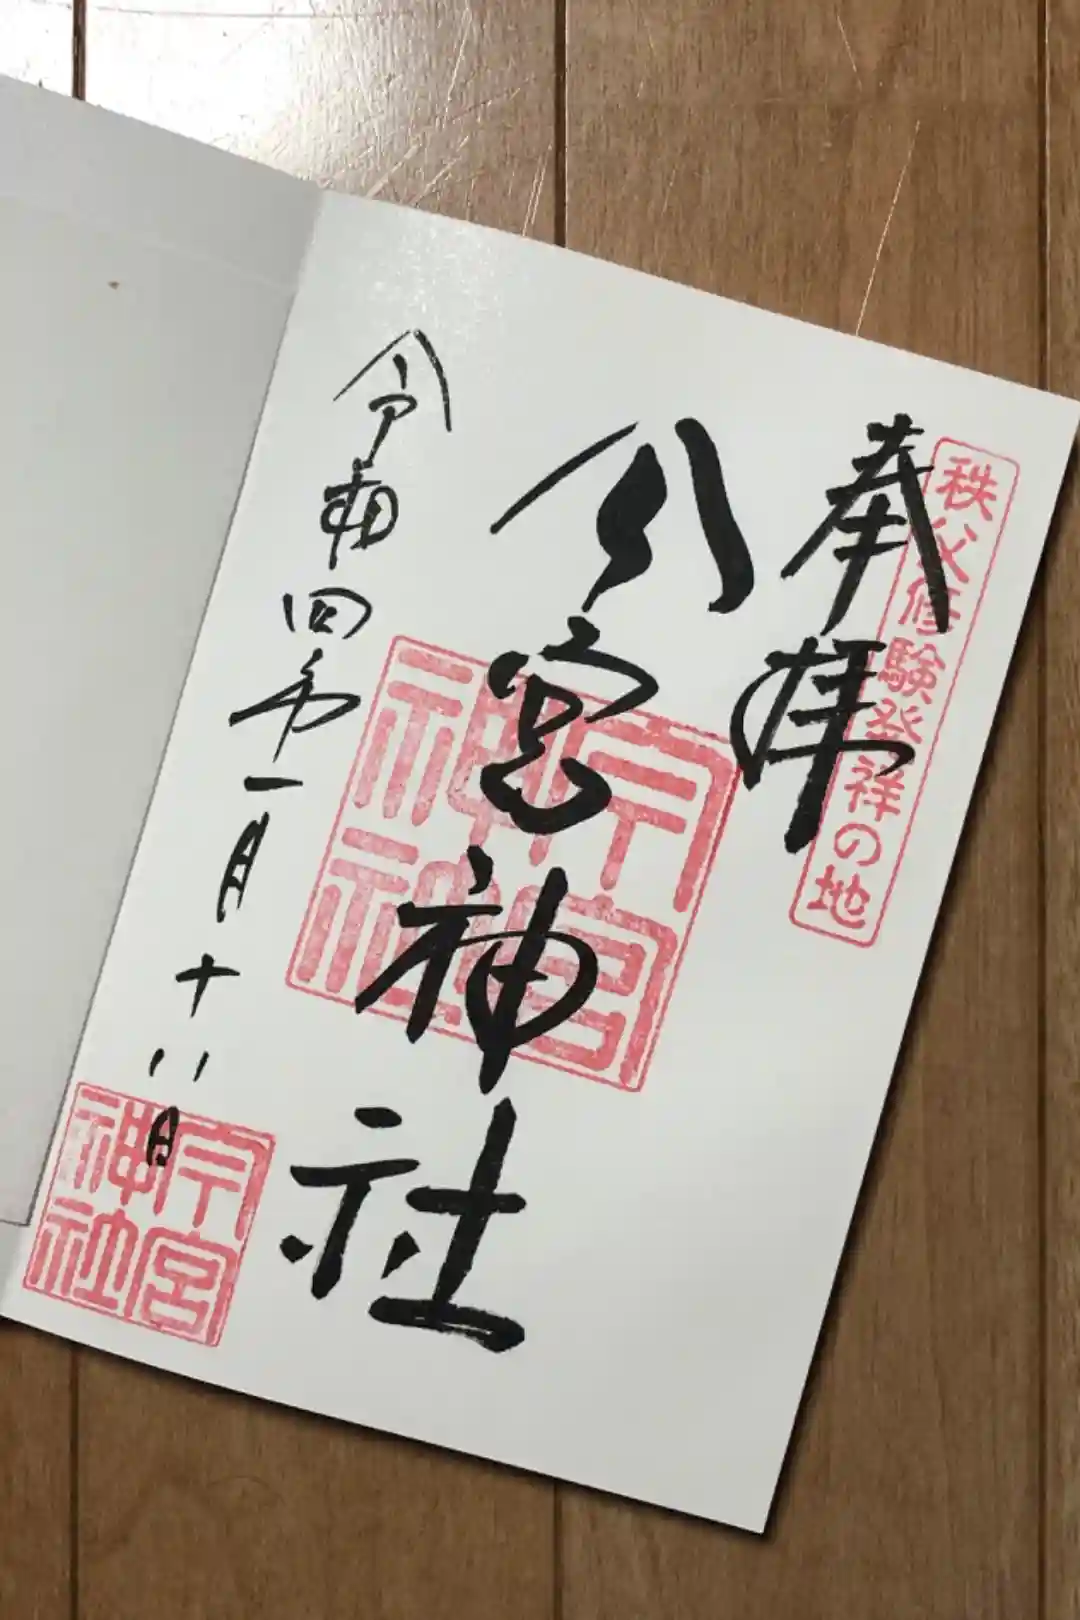 秩父修験発祥の地
奉拝
今宮神社
今宮神社
令和四年一月十八日
今宮神社